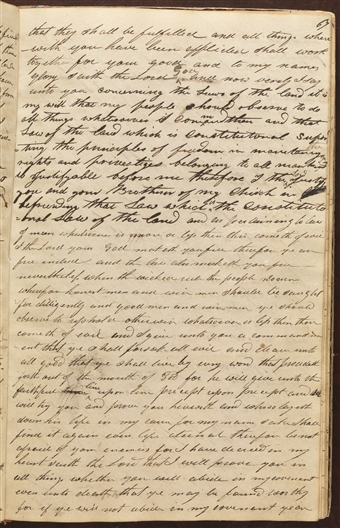 63
that they shall be fulfilled and all things where
with you have been afflicted shall work
togeth for your good and to my names
glory saith the Lord God and now verily I say
unto you concerning the Laws of the land it is
my will that my people should observe to do
all things whatsoever I command them and that
Law of the land which is constitutional suppor
ting the principles of freedom in maintaining
rights and privileges belonging to all mankind
is justifiable before me therefore I the Lord justify
you and your Brethren of my Church in
befriending that Law which is the constitutio
nal Law of the land and as pertaining to law
of man whatsoever is more or less than these cometh of evil
I the Lord your God maketh you free therefore ye are
free indeed and the law also maketh you free
nevertheless when the wicked rule the people mourn
wherefore honest men and wise men should be saught
for diligently and good men and wise men ye should
observe to uphold otherwise whatsoever is less than these
cometh of evil and I give unto you a commandm
ent that ye shall forsake all evil and cleave unto
all good that ye shall live by every word that proceedeth
forth out of the mouth of God for he will give unto the
faithful line upon line precept upon precept and
will try you and prove you herewith and whoso layeth
down his life in my cause for my name sake shall
find it again even life eternal therefore be not
afraid of your enemies for I have decreed in my
heart saith the Lord that I will prove you in
all things whether you will abide in my covenant
even unto death that ye may be found worthy
for if ye will not abide in my covenant ye are